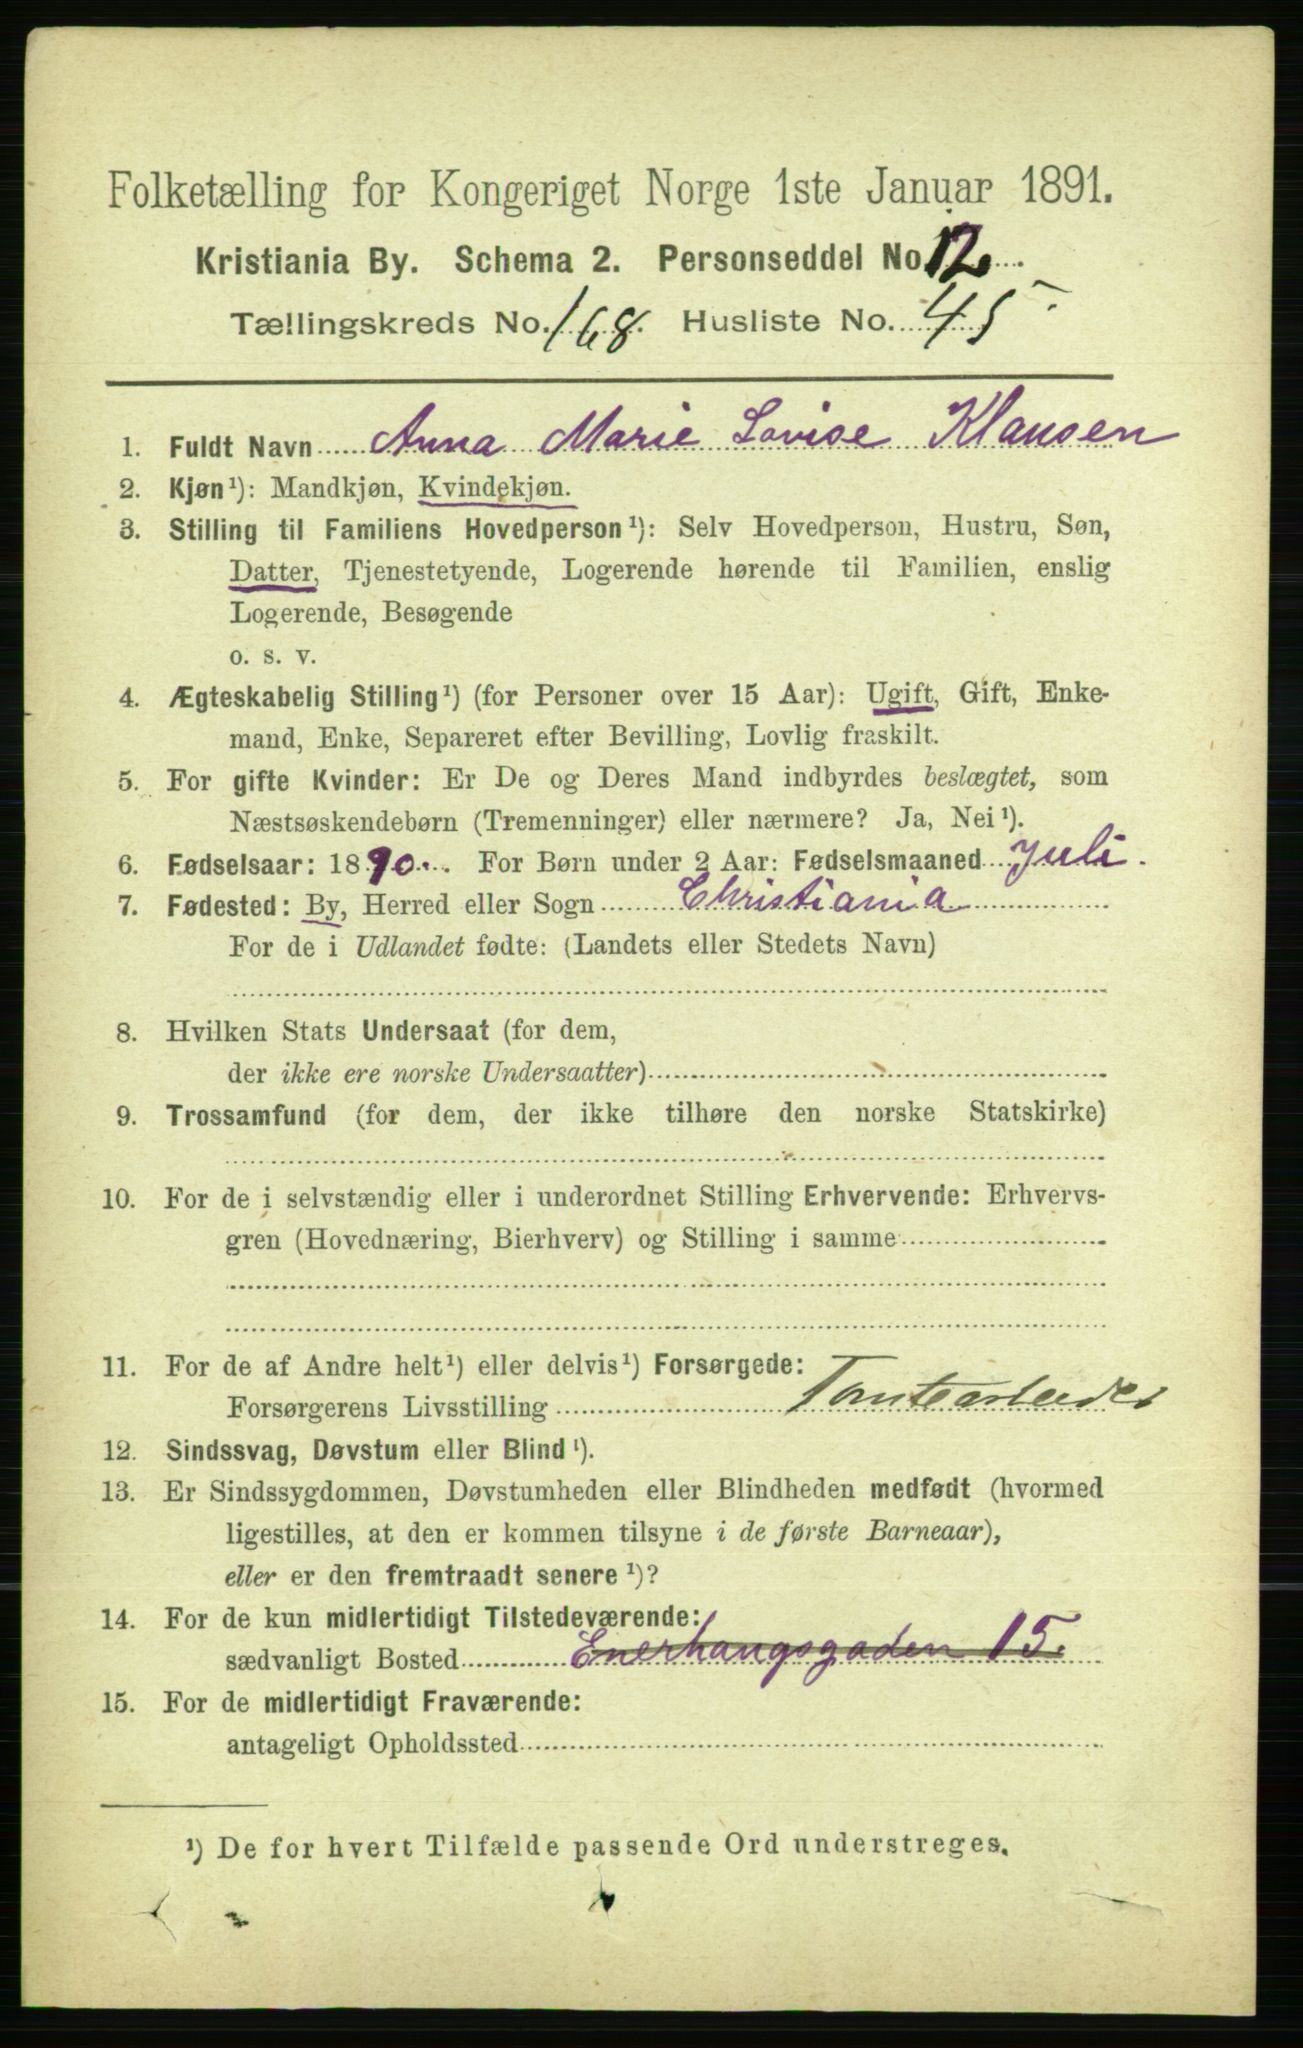 Folketælling for Kongeriget Norge 1ste Januar 1891.
Kristiania By. Schema 2. Personseddel No. 12
Tællingskreds No. 168. Husliste No. 45
1. Fuldt Navn Anna Marie Lovise Klausen
2. Kjøn¹): Mandkjøn, Kvindekjøn.
3. Stilling til Familiens Hovedperson¹): Selv Hovedperson, Hustru, Søn,
Datter, Tjenestetyende, Logerende hørende til Familien, enslig
Logerende, Besøgende
o. s. v.
4. Ægteskabelig Stilling¹) (for Personer over 15 Aar): Ugift, Gift, Enke-
mand, Enke, Separeret efter Bevilling, Lovlig fraskilt.
5. For gifte Kvinder: Er De og Deres Mand indbyrdes beslægtet, som
Næstsøskendebørn (Tremenninger) eller nærmere? Ja, Nei¹).
6. Fødselsaar: 1890. For Børn under 2 Aar: Fødselsmaaned Juli.
7. Fødested: By, Herred eller Sogn Christiania
For de i Udlandet fødte: (Landets eller Stedets Navn)
8. Hvilken Stats Undersaat (for dem,
der ikke ere norske Undersaatter)
9. Trossamfund (for dem, der ikke tilhøre den norske Statskirke)
10. For de i selvstændig eller i underordnet Stilling Erhvervende: Erhvervs-
gren (Hovednæring, Bierhverv) og Stilling i samme
11. For de af Andre helt¹) eller delvis¹) Forsørgede:
Forsørgerens Livsstilling Tomtearbeider
12. Sindssvag, Døvstum eller Blind¹).
13. Er Sindssygdommen, Døvstumheden eller Blindheden medfødt (hvormed
ligestilles, at den er kommen tilsyne i de første Barneaar),
eller er den fremtraadt senere¹)?
14. For de kun midlertidigt Tilstedeværende:
sædvanligt Bosted Enerhaugsgaden 15.
15. For de midlertidigt Fraværende:
antageligt Opholdssted
¹) De for hvert Tilfælde passende Ord understreges.